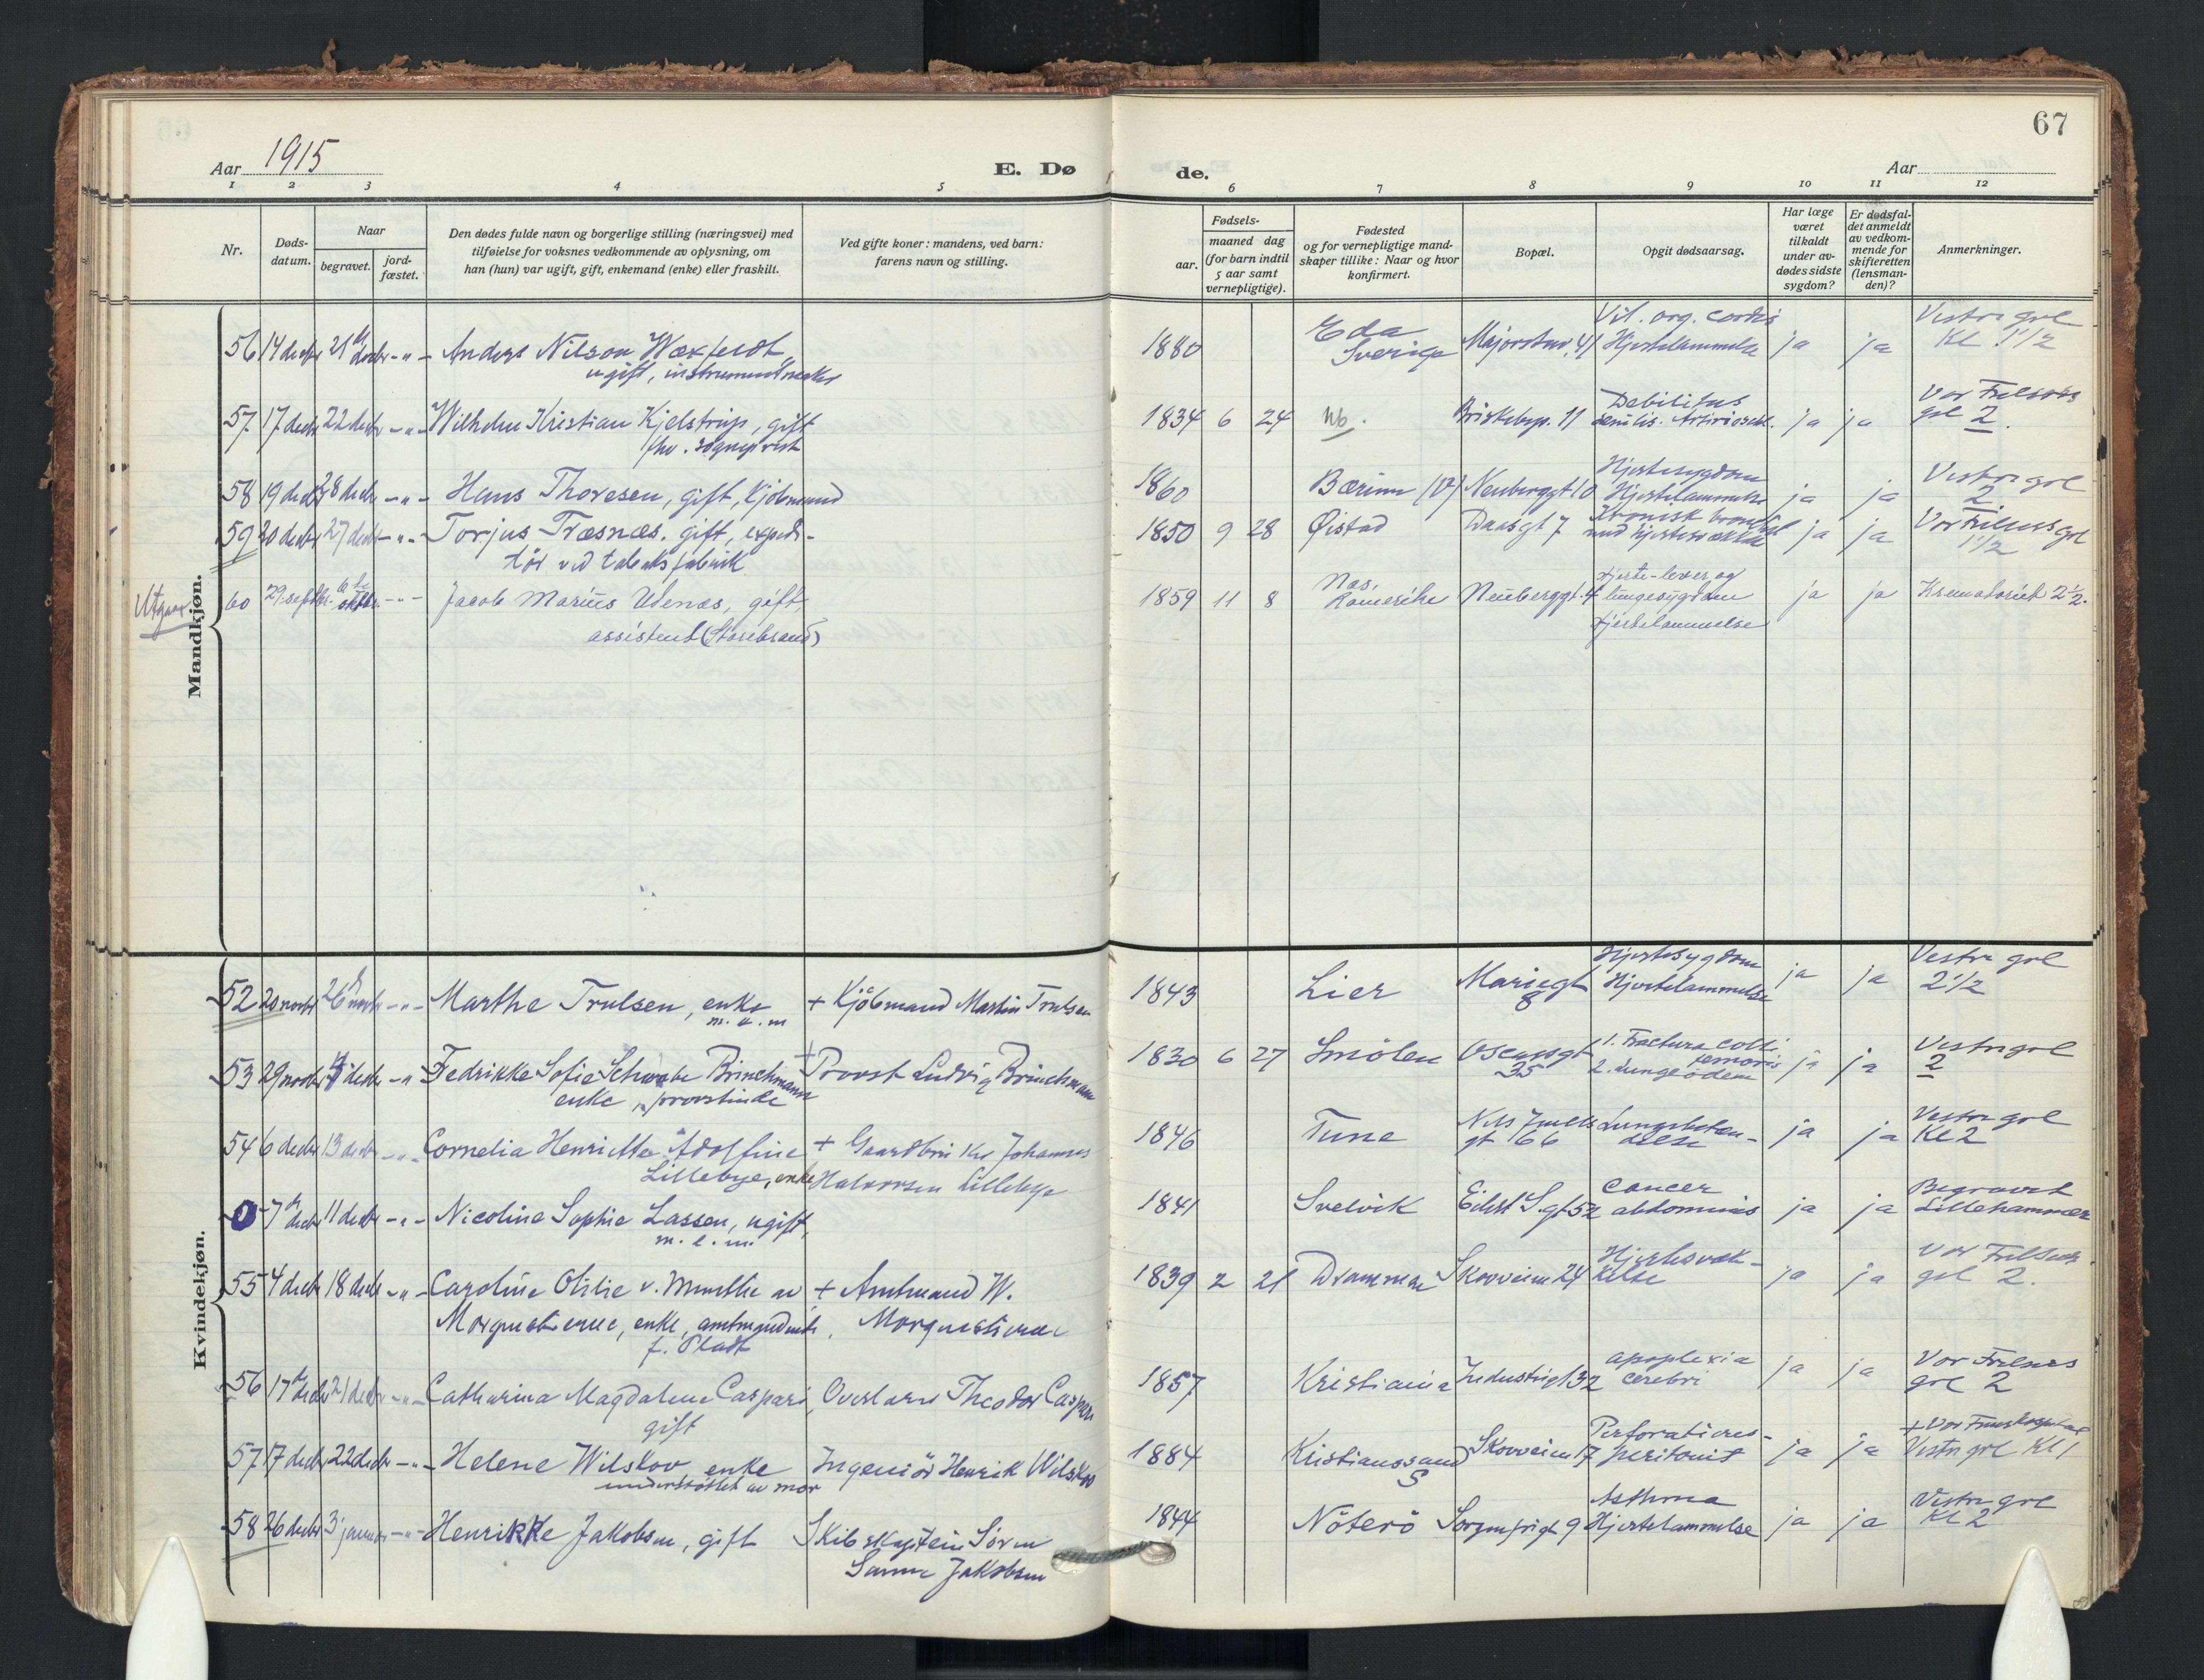 67
Aar 1915
E. Dø
de.
Aar
1 2 3 4 5 6 7 8 9 10 11 12
Nr.
Døds-
datum.
Naar
begravet.
jord-
fæstet.
Den dødes fulde navn og borgerlige stilling (næringsvei) med
tilføielse for voksnes vedkommende av oplysning, om
han (hun) var ugift, gift, enkemand (enke) eller fraskilt.
Ved gifte koner: mandens, ved barn:
farens navn og stilling.
Fødsels-
aar.
maaned dag
(for barn indtil
5 aar samt
vernepligtige).
Fødested
og for vernepligtige mand-
skaper tillike: Naar og hvor
konfirmert.
Bopæl.
Opgit dødsaarsag.
Har læge
været
tilkaldt
under av-
dødes sidste
sygdom?
Er dødsfal-
det anmeldt
av vedkom-
mende for
skifteretten
(lensman-
den)?
Anmerkninger.
Mandkjøn.
56 14 decbr 21 decbr -"- Anders Nilson 1880 Eda Sverige Majorstuv. 41 Vit. org. cordis Hjertelammelse ja ja Vestre grl Kl 1 1/2
ugift, instrumentmaker
57 17 decbr 22 decbr -"- Wilhelm Kristian Kjelstrup, gift 1834 6 24 Nb. Briskebyv. 11 Debilitas senilis. ja ja Vor Frelsers grl 2.
fhv. sogneprest
58 19 decbr 28 decbr -"- Hans Thoresen, gift, Kjøbmand 1860 Bærum Neuberggt 10 Hjertesygdom Hjertelammelse ja ja Vestre grl 2
59 20 decbr 27 decbr -"- Torjus Træsnæs. gift, expedi- 1850 9 28 Øistad Daasgt 7 Kronisk ja ja Vor Frelsers grl 1 1/2
tør ved tobaksfabrik
60 29 septbr. 6 oktbr. -"- Jacob Marius Udenæs, gift, 1859 11 8 Næs, Romerike Neuberggt. 4 Hjerte-lever og lungesygdom Hjertelammelse ja ja Krematoriet 2 1/2.
assistent (Storebrand)
Kvindekjøn.
52 20 novbr 26 novbr -"- Marthe Trulsen, enke + Kjøbmand Martin Trulsen 1843 Lier Mariegt 8 Hjertesygdom Hjertelammelse ja ja Vestre grl 2 1/2
53 29 novbr decbr -"- Fedrikke Sofie Schwabe Brinchmann + Provst Ludvig Brinchmann 1830 6 27 Smølen Oscarsgt 35 1. Fractura colli femoris 2. Lungeødem ja ja Vestre grl 2
enke, provstinde
54 6 decbr 13 decbr -"- Cornelia Henriette Adolfine + Gaardbruker Johannes 1846 Tune Nils Juels gt 66 Lungebeten- delse ja ja Vestre grl Kl 2
Lillebye, enke Halvorsen Lillebye
0 7 decbr 11 decbr -"- Nicoline Sophie Lassen, ugift, 1841 Svelvik Eilert S. gt 52 Cancer abdominis ja ja Begravet Lillehammer
55 4 decbr 18 decbr -"- Caroline Otilie v. Munthe av + Amtmand W. 1839 2 21 Drammen Skovveien 24 Hjertesvæk- kelse ja ja Vor Frelsers grl 2.
Morgenstierne, enke, amtmandinde, Morgenstierne
f. Pladt
56 17 decbr 21 decbr -"- Catharina Magdalene Caspari, Overlærer Theodor Caspari 1857 Kristiania Industrigt 32 Apoplexia cerebri ja ja Vor Frelsers grl 2
gift
57 17 decbr 22 decbr -"- Helene Wilskov enke Ingeniør Henrik Wilskov 1884 Kristianssand S Skovveien 17 Perforations- peritonit ja ja + Vor Frues hospital Vestre grl Kl 1
understøttet av mor
58 26 decbr 3 januar -"- Henrikke Jakobsen, gift Skibskaptein Søren 1844 Nøterø Sorgenfrigt 9 Asthma Hjertelammelse ja ja Vestre grl Kl 2
Sanne Jakobsen